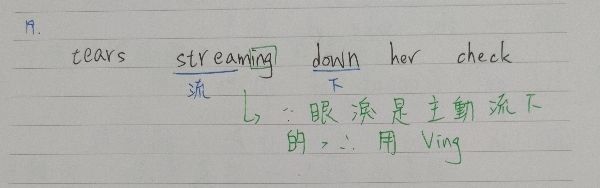 19.
tears streaming down her check
流 下
↳ ∵ 眼淚是主動流下
的，∴ 用 Ving